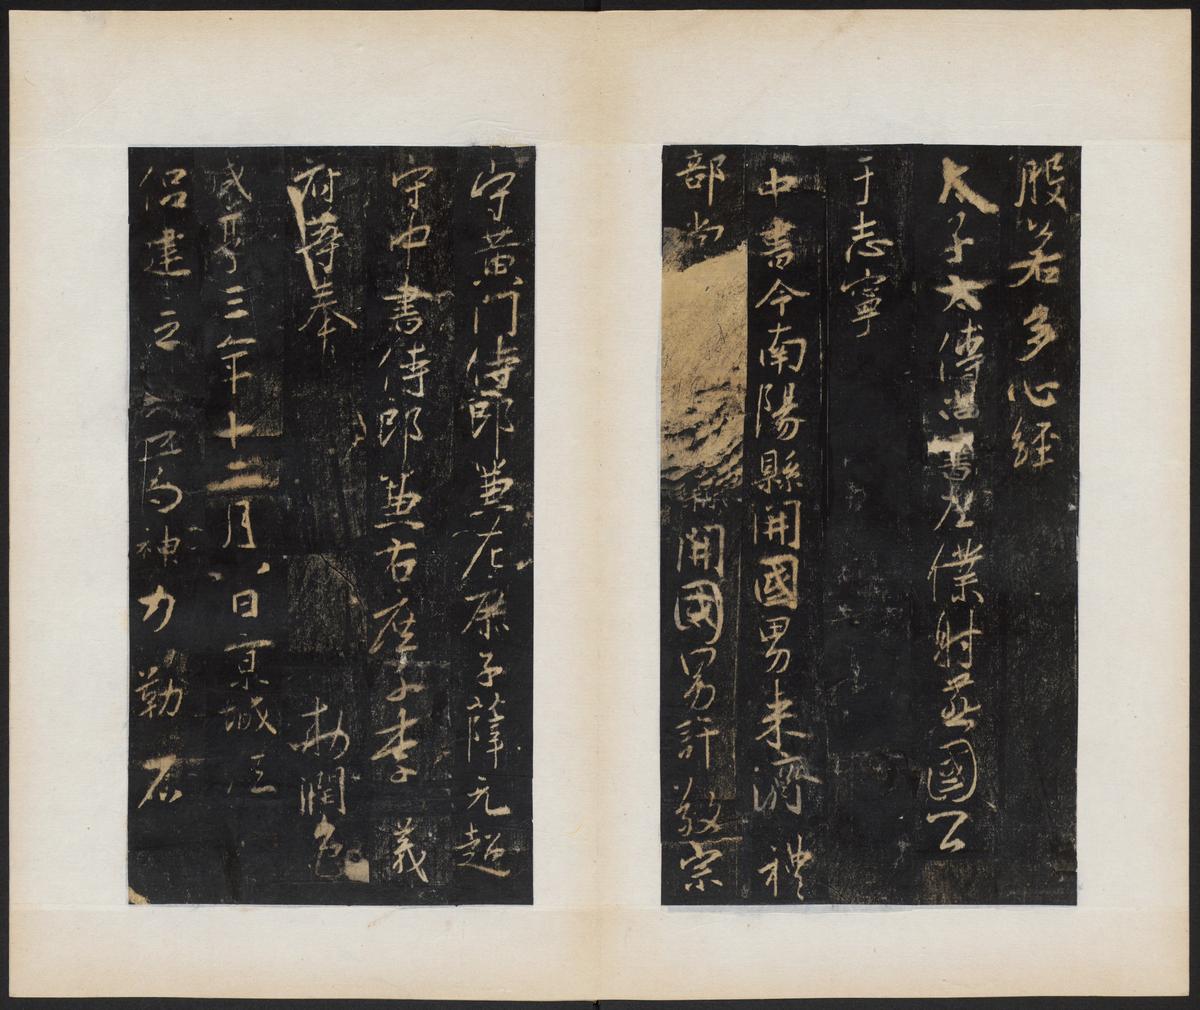 般若多心經
太子太傅尚書左僕射燕國公
于志寧
中書令南陽縣開國男来濟 禮
部尚 縣開國男許敬宗
守黃門侍郎兼左庶子薛元超
守中書侍郎兼右庶子李 義
府等奉 勑潤色
咸亨三年十二月八日京城 法
侶建立 神力勒石